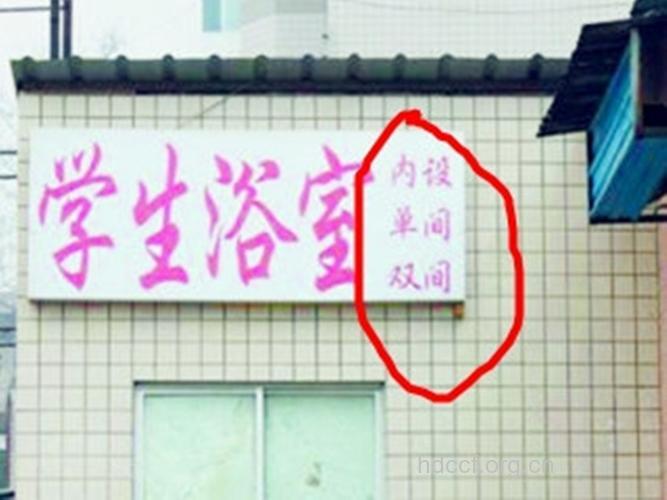 学生浴室
内设
单间
双间
hdccf.org.cn